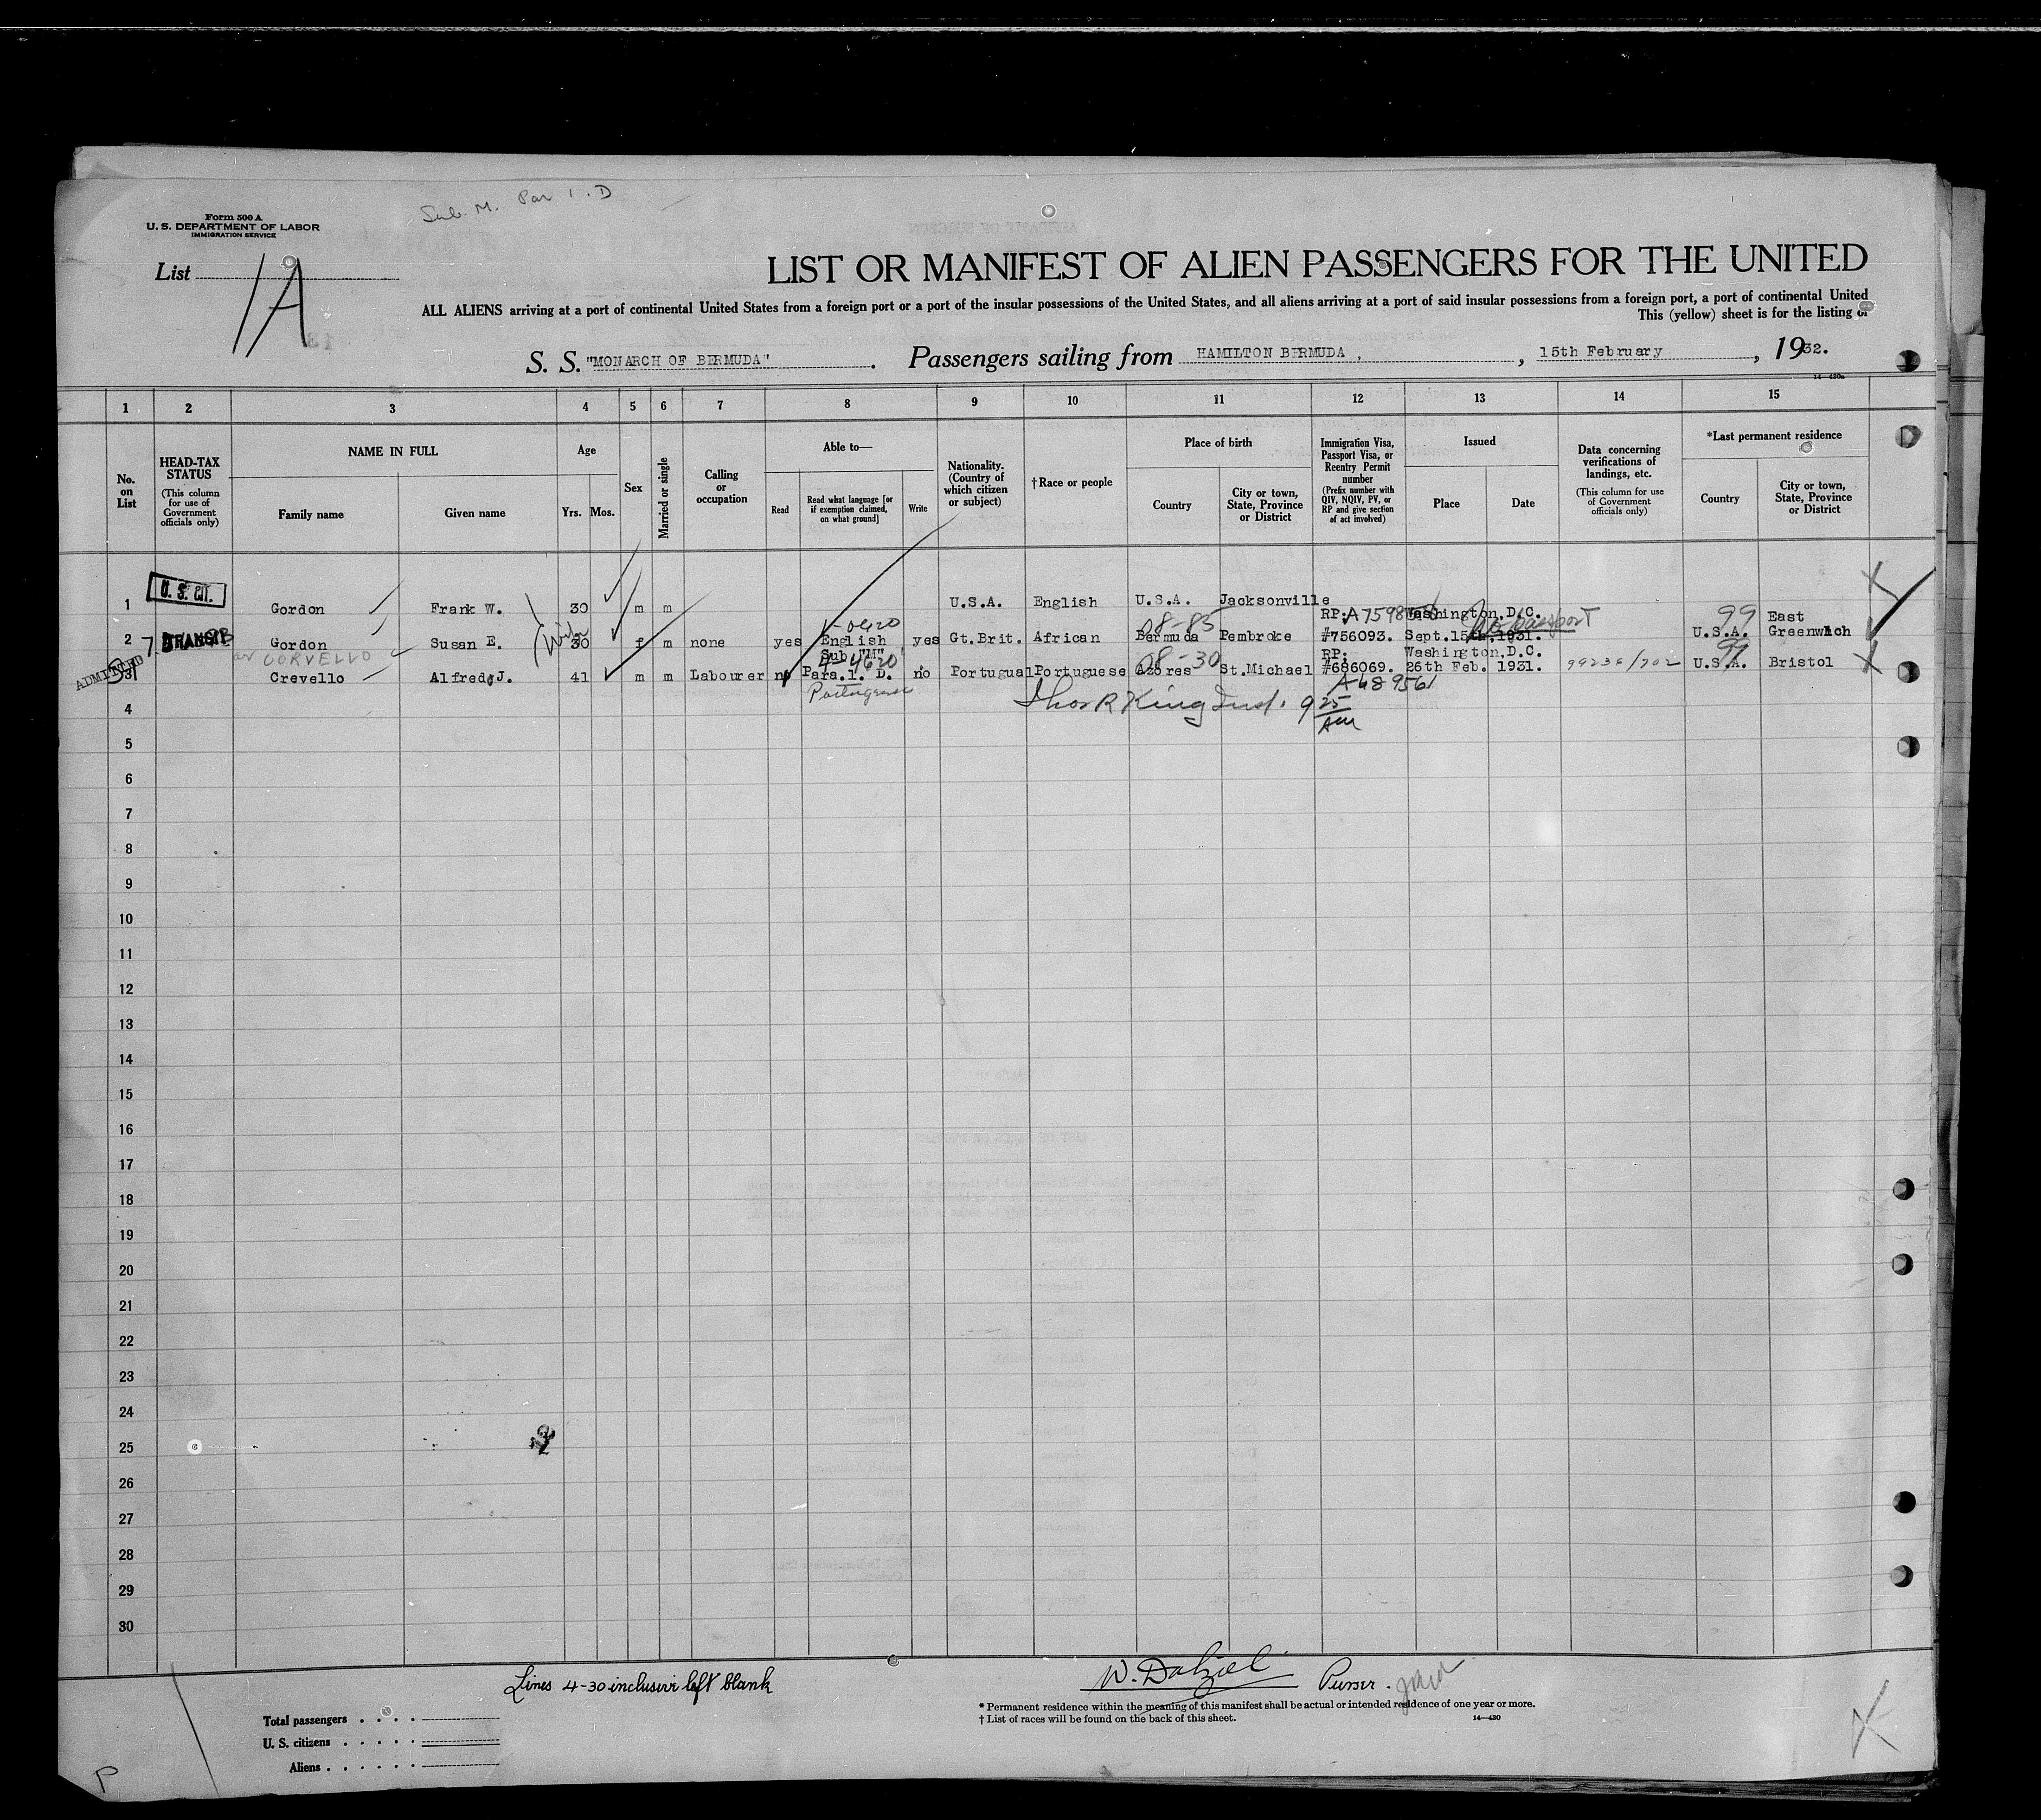 Sub. M. Par 1. D
Form 500 A
U. S. DEPARTMENT OF LABOR
IMMIGRATION SERVICE
List 1A
LIST OR MANIFEST OF ALIEN PASSENGERS FOR THE UNITED
ALL ALIENS arriving at a port of continental United States from a foreign port or a port of the insular possessions of the United States, and all aliens arriving at a port of said insular possessions from a foreign port, a port of continental United
This (yellow) sheet is for the listing of
S. S. "MONARCH OF BERMUDA". Passengers sailing from HAMILTON BERMUDA , , 15th February , 1932.
14—430a
1 2 3 4 5 6 7 8 9 10 11 12 13 14 15
No. on List
HEAD-TAX STATUS
(This column for use of Government officials only)
NAME IN FULL
Family name Given name
Age
Yrs. Mos.
Sex
Married or single
Calling or occupation
Able to—
Read
Read what language [or if exemption claimed, on what ground]
Write
Nationality. (Country of which citizen or subject)
†Race or people
Place of birth
Country
City or town, State, Province or District
Immigration Visa, Passport Visa, or Reentry Permit number
(Prefix number with QIV, NQIV, PV, or RP and give section of act involved)
Issued
Place Date
Data concerning verifications of landings, etc.
(This column for use of Government officials only)
*Last permanent residence
Country
City or town, State, Province or District
1 U. S. CIT. Gordon Frank W. 30 m m U.S.A. English U.S.A. Jacksonville
RP; Washington, D.C. No passport 99 East
2 TRANSIT Gordon Susan E. (Wife 30 f m none yes English yes Gt.Brit. African Bermuda 08-83 Pembroke #756093. Sept.15th,1931. U.S.A. Greenwich
or CORVELLO Sub."M" RP; Washington,D.C. 99
ADMITTED 3 Crevello Alfred J. 41 m m Labourer no Para.1. D. no Portugual Portuguese Azores 08-30 St.Michael #686069. 26th Feb. 1931. 99236/702 U.S.A. Bristol
Portuguese A689561
Thos R King Insp. 9 25 AM
4
5
6
7
8
9
10
11
12
13
14
15
16
17
18
19
20
21
22
23
24
25
26
27
28
29
30
Lines 4-30 inclusive left blank
W. Dalziel Purser.
* Permanent residence within the meaning of this manifest shall be actual or intended residence of one year or more.
† List of races will be found on the back of this sheet.
14—430
Total passengers . . . .
U. S. citizens . . . . .
Aliens . . . . . .
P